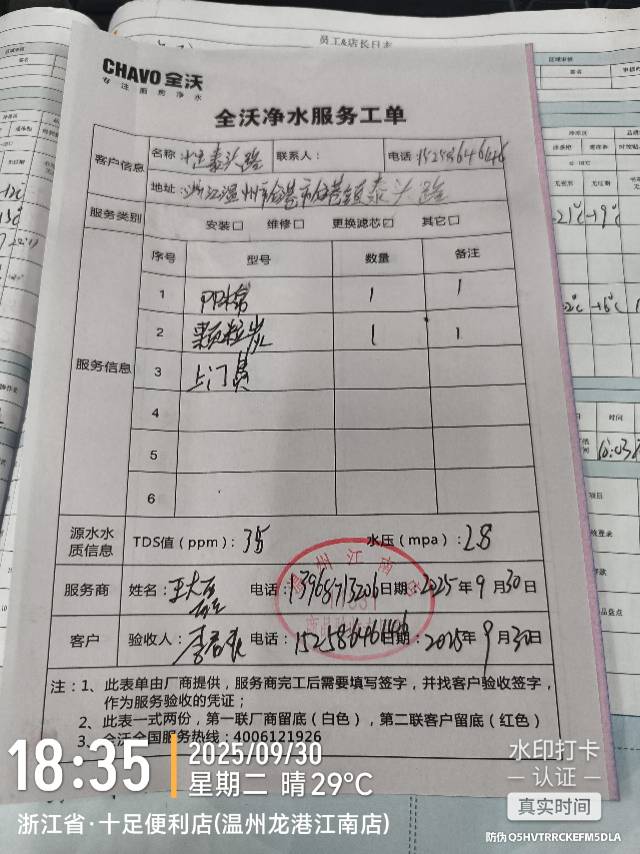 员工&店长日志
CHAVO 全沃
专注厨房净水
全沃净水服务工单
客户信息
名称： 泰头路 联系人： 电话：15258646446
地址：浙江温州市龙港市龙港镇泰头路
服务类别 安装□ 维修□ 更换滤芯☑ 其它□
服务信息
序号 型号 数量 备注
1 PP棉 1 1
2 颗粒炭 1 1
3 上门费
4
5
6
源水水质信息 TDS值（ppm）：35 水压（mpa）：2.8
服务商 姓名：王大 电话：13968713206 日期：2025年9月30日
客户 验收人：李 电话：15258646446 日期：2025年9月30日
注：1、此表单由厂商提供，服务商完工后需要填写签字，并找客户验收签字，
作为服务验收的凭证；
2、此表一式两份，第一联厂商留底（白色），第二联客户留底（红色）
3、全沃全国服务热线：4006121926
18:35
2025/09/30
星期二 晴 29℃
浙江省·十足便利店(温州龙港江南店)
水印打卡
认证
真实时间
防伪 O5HVTRRCKEFM5DLA